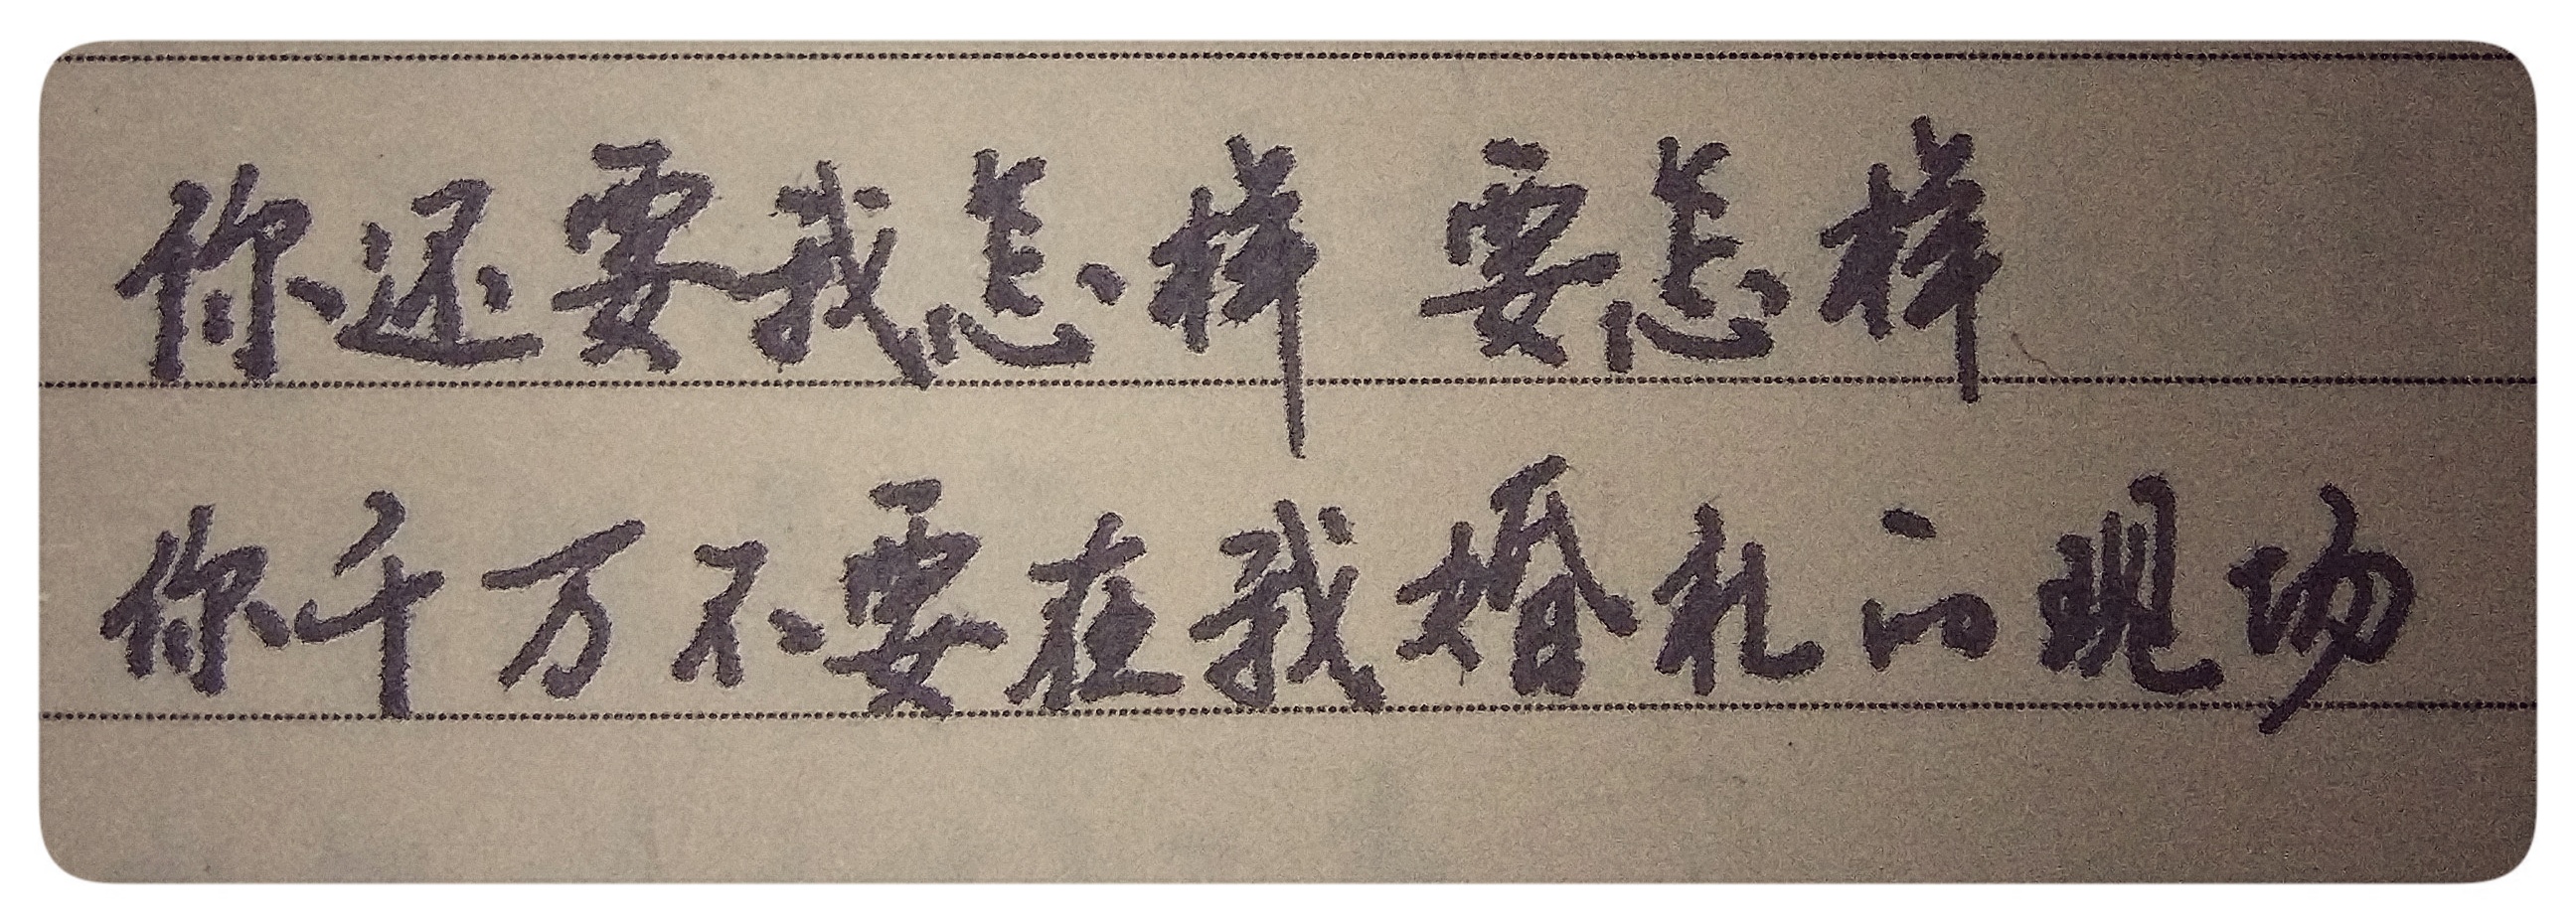 你还要我怎样 要怎样
你千万不要在我婚礼的现场